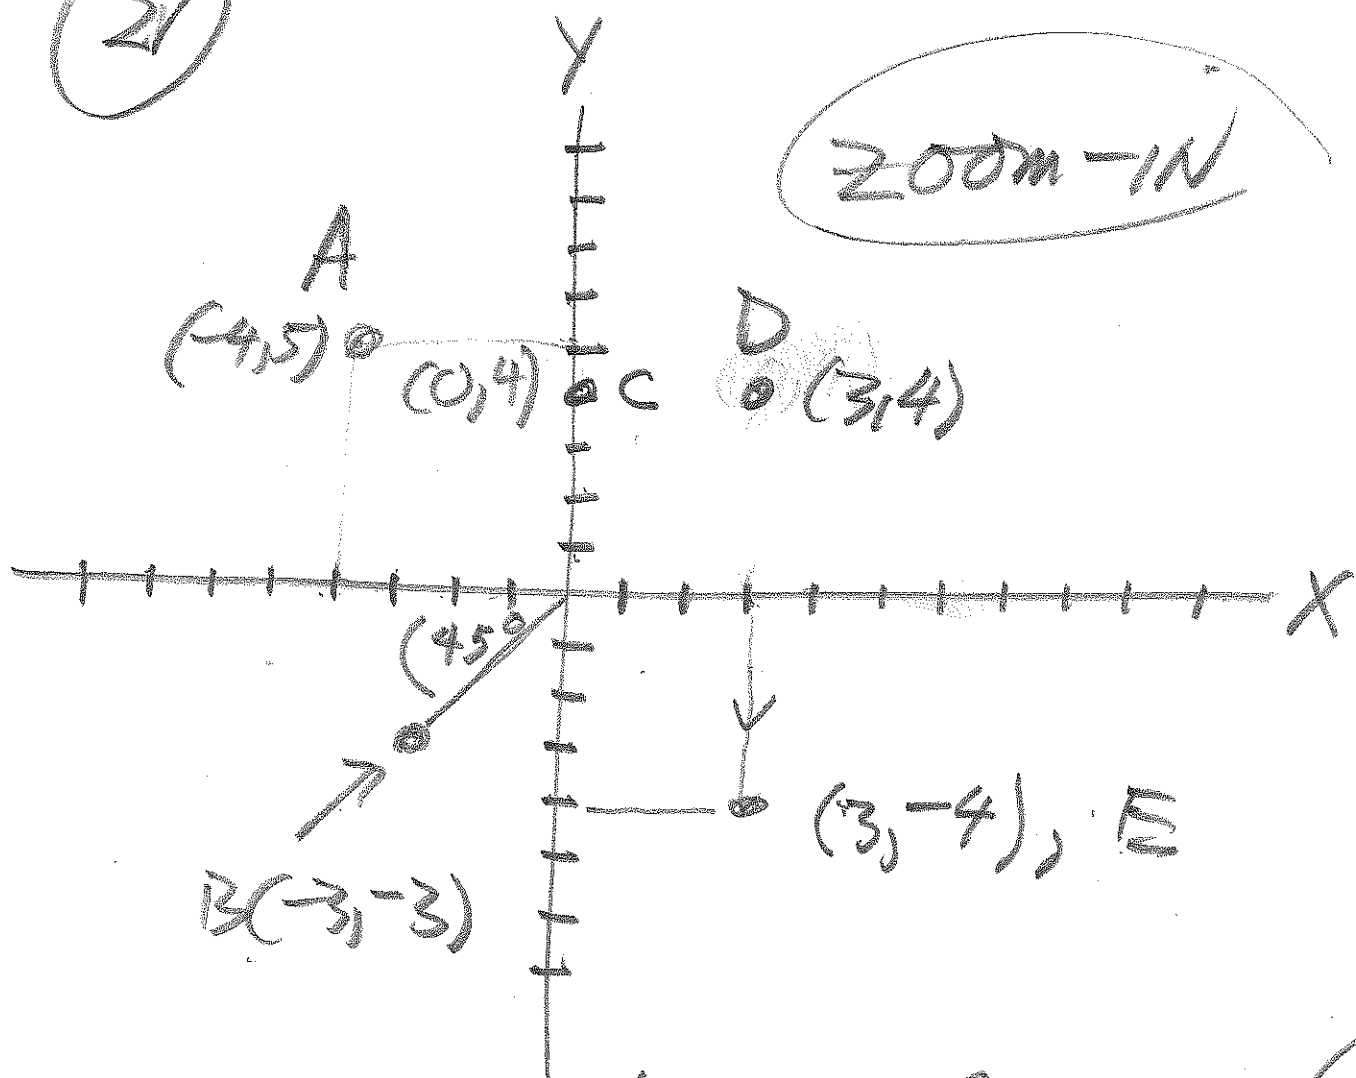 21
Y
ZOOM-IN
A
D
(-4,5)
(0,4) C
(3,4)
X
(45°
(3,-4), E
B(-3,-3)